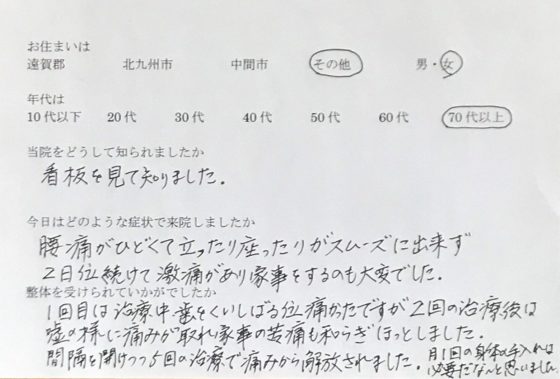 お住まいは
遠賀郡 北九州市 中間市 その他 男・女
年代は
10代以下 20代 30代 40代 50代 60代 70代以上
当院をどうして知られましたか
看板を見て知りました。
今日はどのような症状で来院しましたか
腰痛がひどくて立ったり座ったりがスムーズに出来ず
2日位続けて激痛があり家事をするのも大変でした。
整体を受けられていかがでしたか
1回目は治療中歯をくいしばる位痛かたですが2回の治療後は
嘘の様に痛みが取れ家事の苦痛も和らぎほっとしました。
間隔を開けつつ5回の治療で痛みから解放されました。月1回の身体の手入れは
必要だなんと思いました